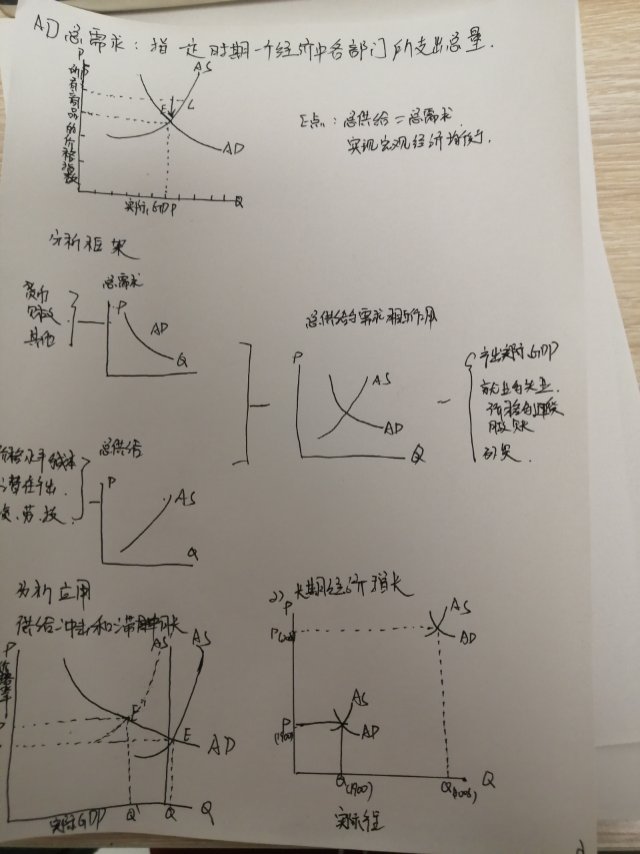 AD总需求：指一定时期一个经济中各部门所支出总量.
P
AS
所有商品的价格指数
E
AD
Q
实际GDP
E点：总供给=总需求
实现宏观经济均衡.
分析框架
货币
财政
其他
总需求
P
AD
Q
总供给与需求相互作用
P
AS
AD
Q
产出实际GDP
就业与失业
价格与通胀
总供给
P
AS
Q
价格水平成本
潜在产出
资.劳.技
分析应用
供给冲击和滞胀
P
AS'
AS
E'
E
AD
Q'
Q
Q
实际GDP
2)长期经济增长
P
AS
AD
P
(1900)
AS
AD
Q(1900)
Q